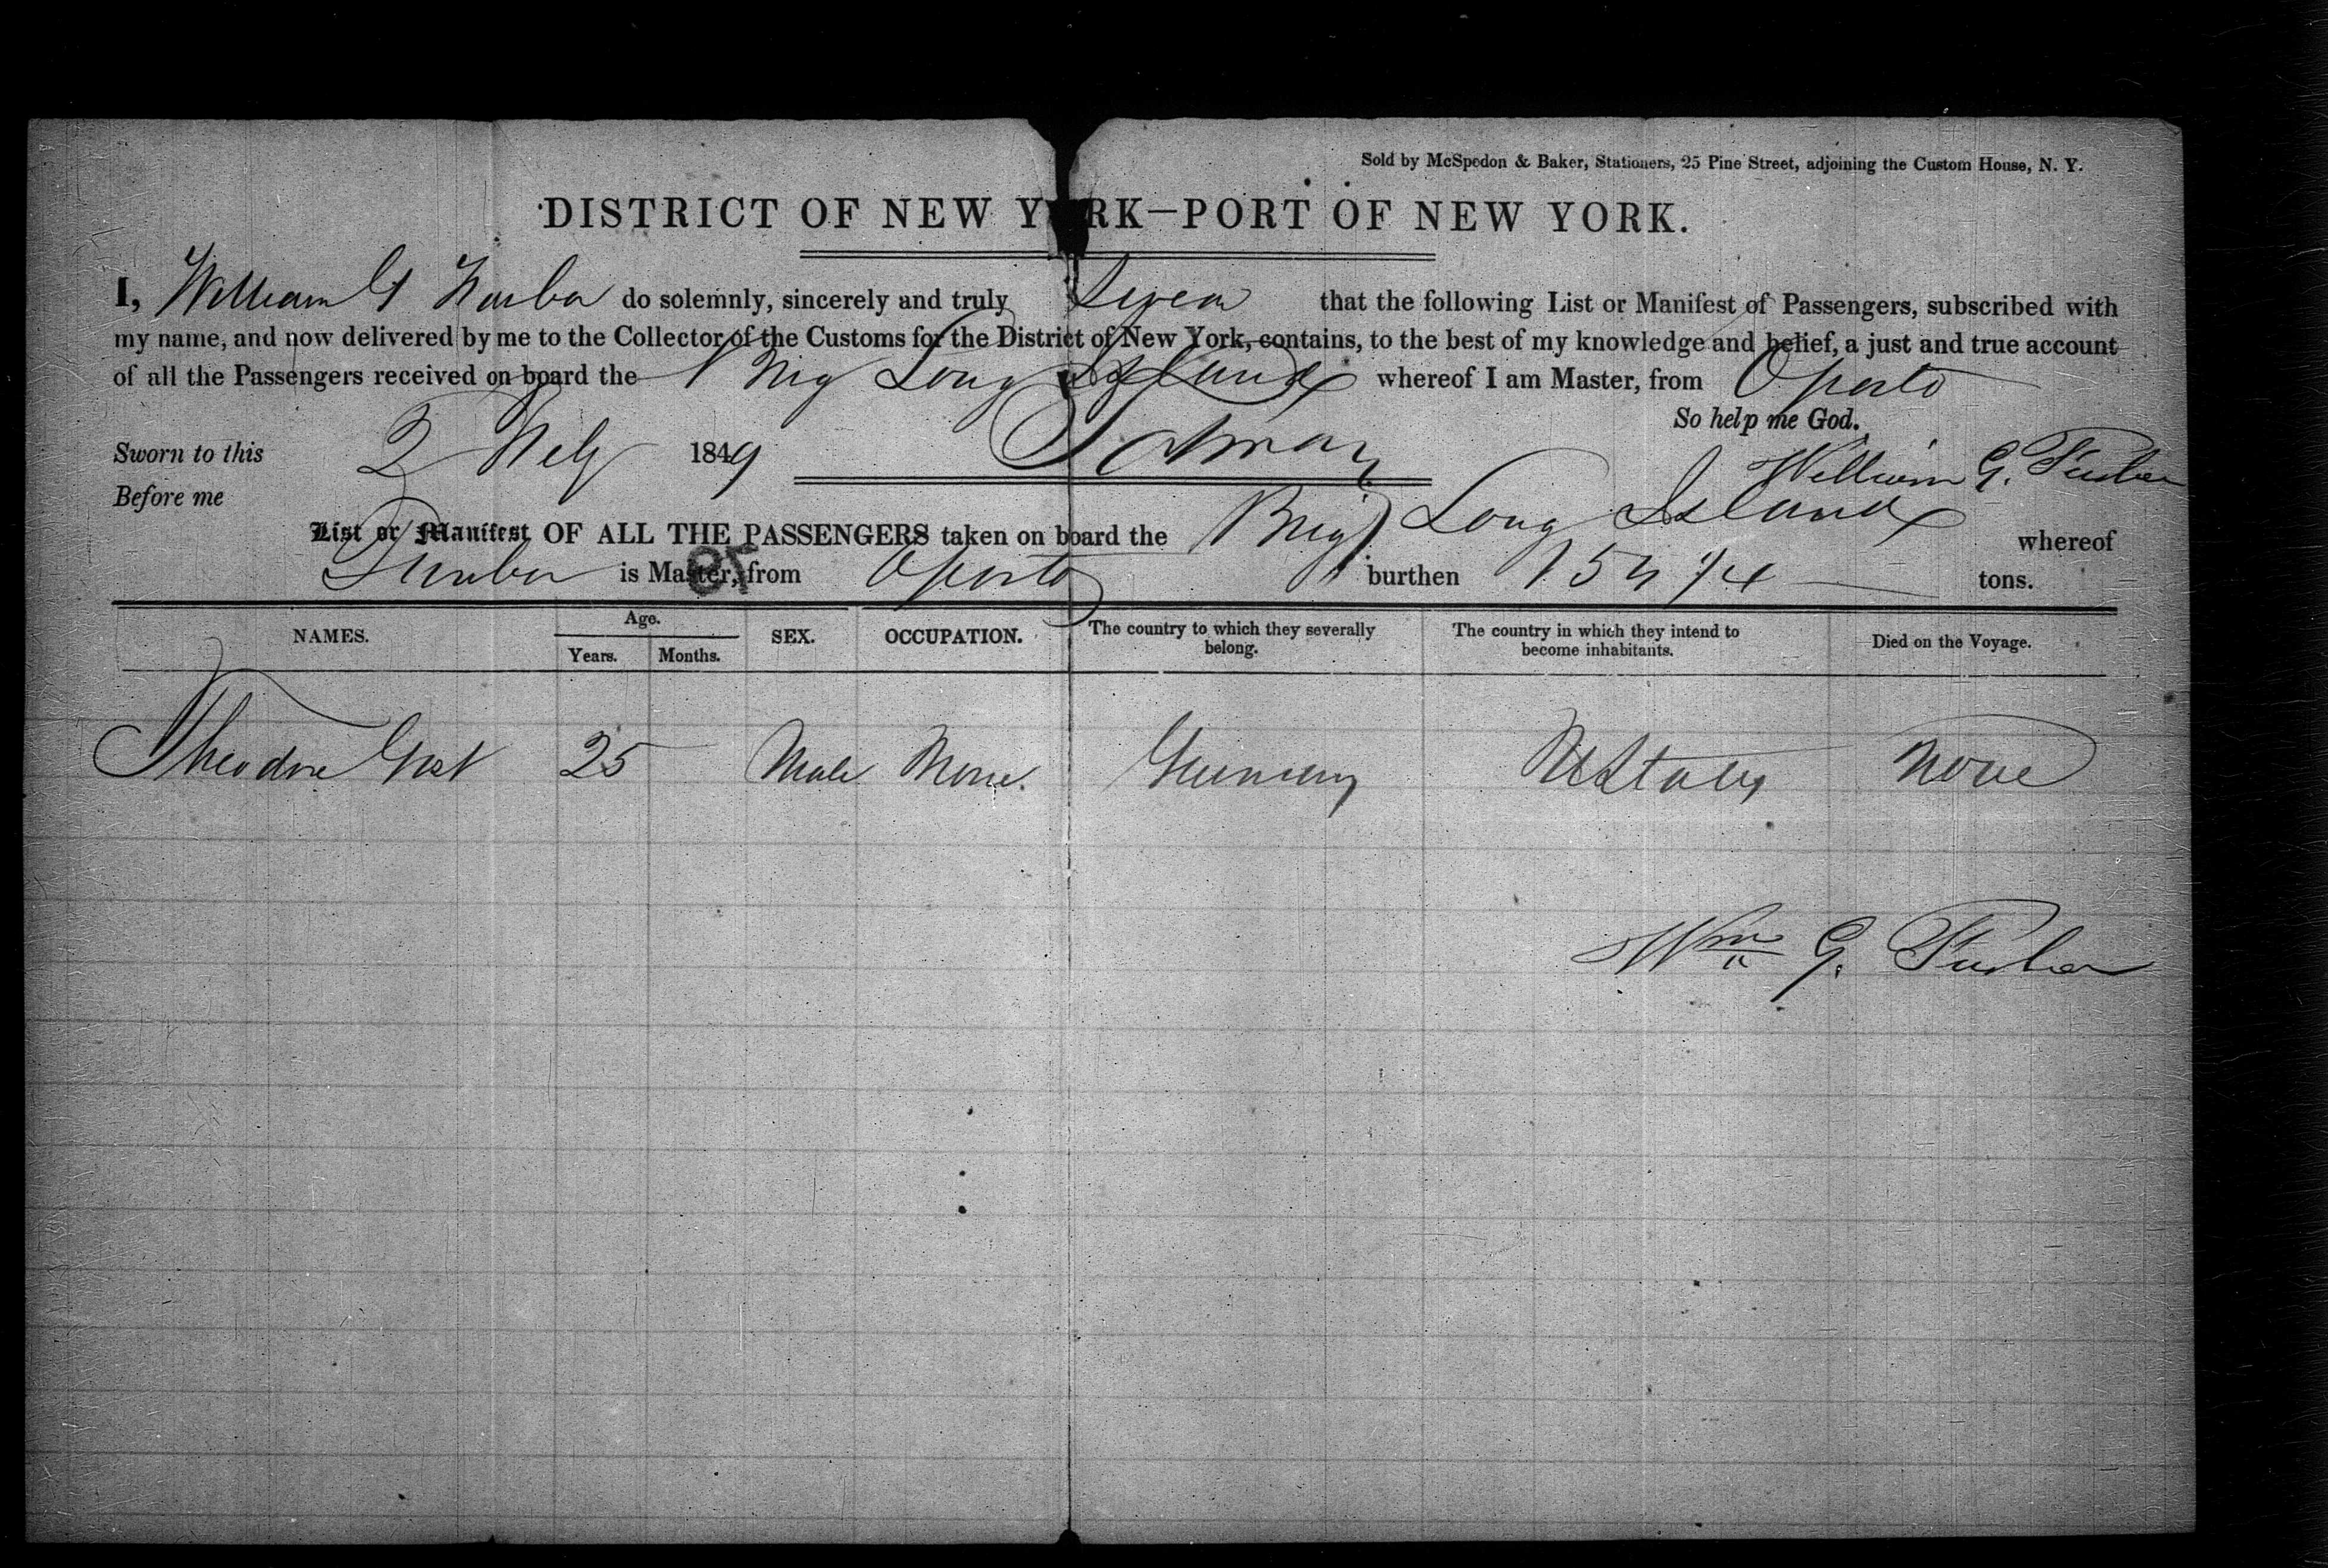 Sold by McSpedon & Baker, Stationers, 25 Pine Street, adjoining the Custom House, N. Y.
DISTRICT OF NEW YORK—PORT OF NEW YORK.
I, William G do solemnly, sincerely and truly Swear that the following List or Manifest of Passengers, subscribed with
my name, and now delivered by me to the Collector of the Customs for the District of New York, contains, to the best of my knowledge and belief, a just and true account
of all the Passengers received on board the Brig Long Island whereof I am Master, from Oporto
So help me God.
Sworn to this 2 1849
William G.
Before me
List or Manifest OF ALL THE PASSENGERS taken on board the Brig Long Island whereof
is Master, from Oporto burthen tons.
NAMES. Age. Years. Months. SEX. OCCUPATION. The country to which they severally belong. The country in which they intend to become inhabitants. Died on the Voyage.
Theodore 25 Male None. Germany UStates None
Wm G.